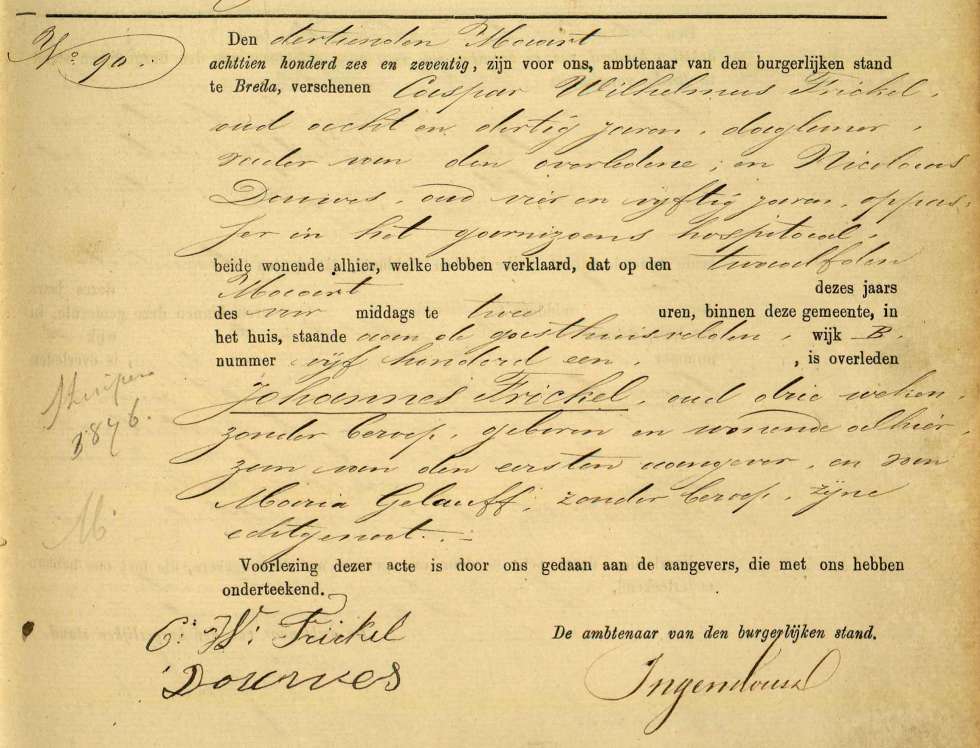 No 90.
Den dertienden Maart
achttien honderd zes en zeventig, zijn voor ons, ambtenaar van den burgerlijken stand
te Breda, verschenen Caspar Wilhelmus Frickel,
oud acht en dertig jaren, daglooner,
vader van den overledene, en Nicolaas
Douwes, oud vier en vijftig jaren, oppas-
ser in het garnizoens hospitaal,
beide wonende alhier, welke hebben verklaard, dat op den twaalfden
Maart dezes jaars
des voor middags te twee uren, binnen deze gemeente, in
het huis, staande aan de gasthuisvelden, wijk B.
nummer vijf honderd een, , is overleden
Johannes Frickel, oud drie weken,
zonder beroep, geboren en wonende alhier,
zoon van den eersten aangever, en van
Maria Gelauff, zonder beroep, zijne
echtgenoot.
1876.
M.
Voorlezing dezer acte is door ons gedaan aan de aangevers, die met ons hebben
onderteekend.
C: W: Frickel
De ambtenaar van den burgerlijken stand.
Douwes
Ingenhousz